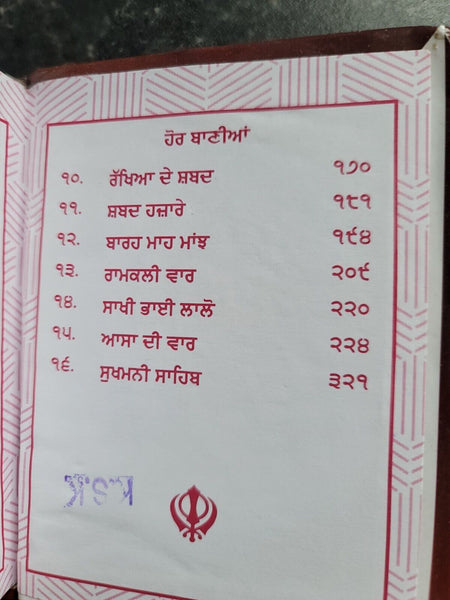 ਹੋਰ ਬਾਣੀਆਂ
੧੦. ਰੱਖਿਆ ਦੇ ਸ਼ਬਦ ੧੭੦
੧੧. ਸ਼ਬਦ ਹਜ਼ਾਰੇ ੧੮੧
੧੨. ਬਾਰਹ ਮਾਹ ਮਾਂਝ ੧੯੪
੧੩. ਰਾਮਕਲੀ ਵਾਰ ੨੦੯
੧੪. ਸਾਖੀ ਭਾਈ ਲਾਲੋ ੨੨੦
੧੫. ਆਸਾ ਦੀ ਵਾਰ ੨੨੪
੧੬. ਸੁਖਮਨੀ ਸਾਹਿਬ ੩੨੧